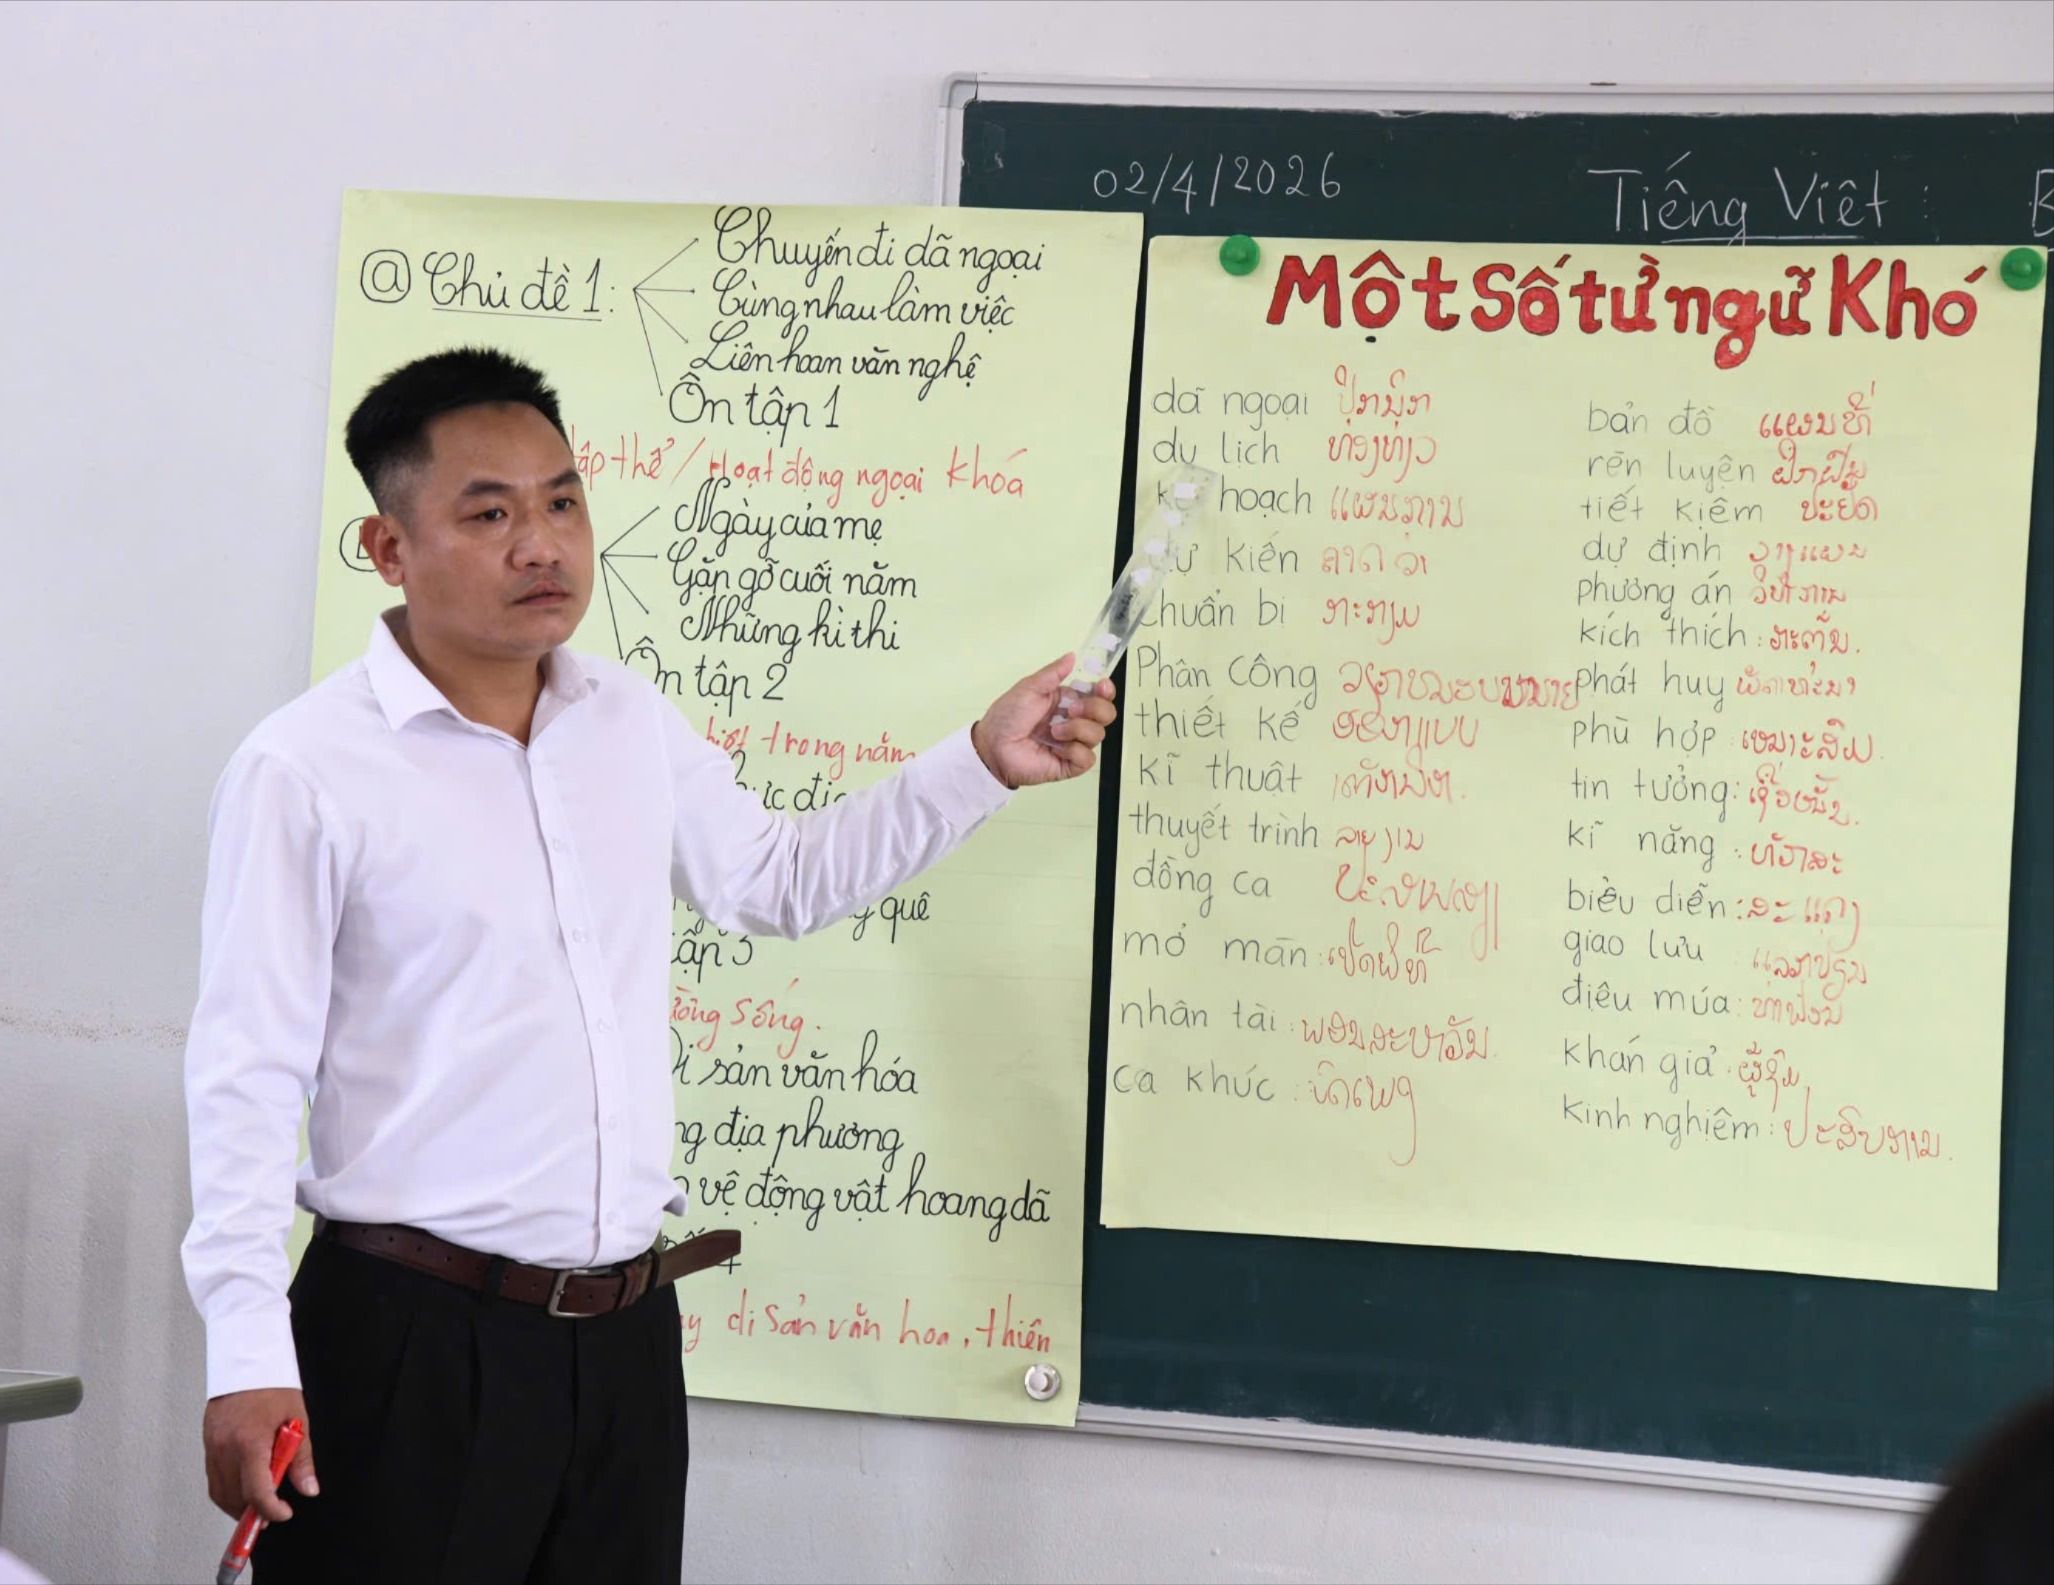 02/4/2026
Tiếng Việt :
@ Chủ đề 1:
Chuyến đi dã ngoại
Cùng nhau làm việc
Liên hoan văn nghệ
Ôn tập 1
tập thể / Hoạt động ngoại khóa
Ngày của mẹ
Gặp gỡ cuối năm
Những kì thi
Ôn tập 2
trong năm
quê
sống.
Di sản văn hóa
địa phương
vệ động vật hoang dã
di sản văn hoa, thiên
Một Số từ ngữ Khó
dã ngoại ປຸກນິກ
du lịch ທ່ອງທ່ຽວ
hoạch ແຜນການ
kiến ຄາດວ່າ
chuẩn bị ກະກຽມ
Phân công
thiết kế ອອກແບບ
kĩ thuật
thuyết trình ລາຍງານ
đồng ca
mở màn :
nhân tài : ພອນສະຫວັນ
ca khúc : ບົດເພງ
bản đồ ແຜນທີ່
rèn luyện ຝຶກຝົນ
tiết kiệm ປະຢັດ
dự định ວາງແຜນ
phương án ວິທີການ
kích thích : ກະຕຸ້ນ.
phát huy ພັດທະນາ
phù hợp : ເໝາະສົມ.
tin tưởng : ເຊື່ອໝັ້ນ.
kĩ năng : ທັກສະ
biểu diễn : ສະແດງ
giao lưu ແລກປ່ຽນ
điệu múa : ທ່າຟ້ອນ
khán giả : ຜູ້ຊົມ
kinh nghiệm : ປະສົບການ.